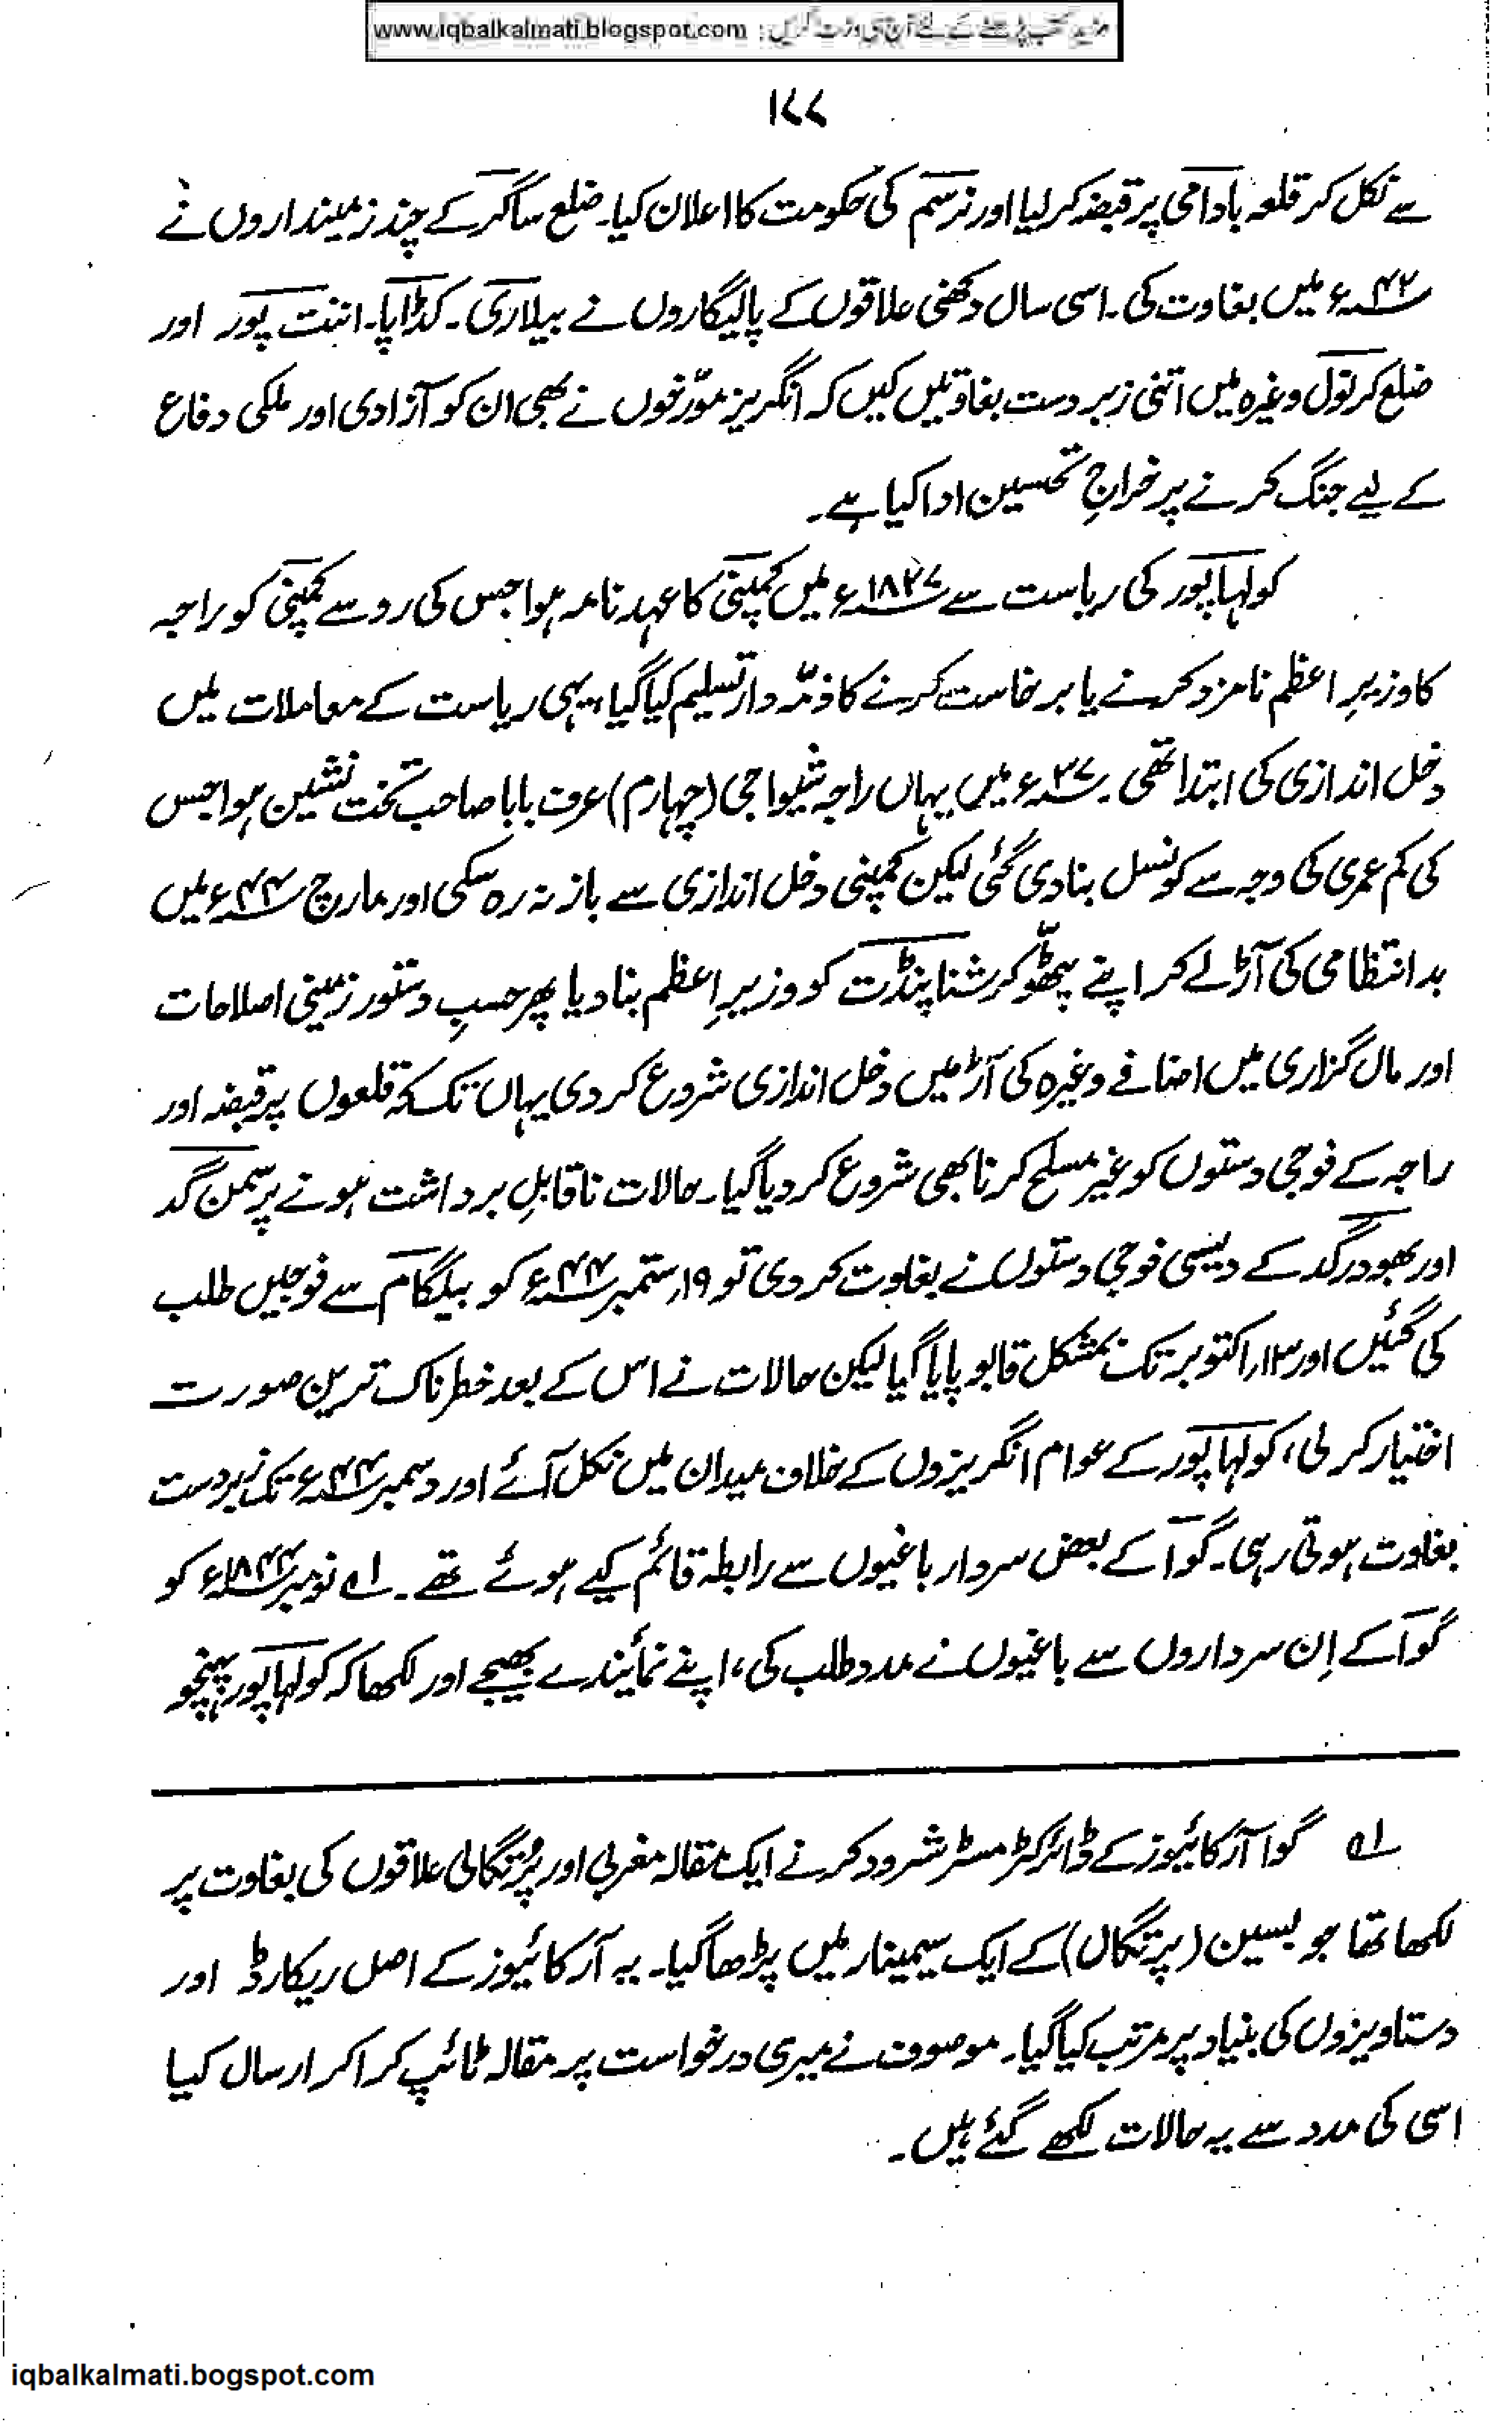 مزید کتب پڑھنے کے لئے آج ہی وزٹ کریں : www.iqbalkalmati.blogspot.com
۱۷۷
سے نکل کر قلعہ بادامی پر قبضہ کر لیا اور نرسم کی حکومت کا اعلان کیا۔ ضلع ساگر کے چند زمینداروں نے
۴۲ء میں بغاوت کی۔ اسی سال دکھنی علاقوں کے پالیگاروں نے بیلاری۔ کڈاپا۔ اننت پور اور
ضلع کرنول وغیرہ میں اتنی زبردست بغاوتیں کیں کہ انگریز مورّخوں نے بھی ان کو آزادی اور ملکی دفاع
کے لیے جنگ کرنے پر خراجِ تحسین ادا کیا ہے۔
کولہاپور کی ریاست سے ۱۸۲۷ء میں کمپنی کا عہد نامہ ہوا جس کی رو سے کمپنی کو راجہ
کا وزیرِ اعظم نامزد کرنے یا برخاست کرنے کا ذمّہ دار تسلیم کیا گیا، یہی ریاست کے معاملات میں
دخل اندازی کی ابتدا تھی۔ ۳۷ء میں یہاں راجہ شیواجی (چہارم) عرف بابا صاحب تخت نشین ہوا جس
کی کم عمری کی وجہ سے کونسل بنا دی گئی لیکن کمپنی دخل اندازی سے باز نہ رہ سکی اور مارچ ۴۴ء میں
بدانتظامی کی آڑ لے کر اپنے پٹھّو کرشنا پنڈت کو وزیرِ اعظم بنا دیا پھر حسبِ دستور زمینی اصلاحات
اور مال گزاری میں اضافے وغیرہ کی آڑ میں دخل اندازی شروع کر دی یہاں تک کہ قلعوں پر قبضہ اور
راجہ کے فوجی دستوں کو غیر مسلح کرنا بھی شروع کر دیا گیا۔ حالات ناقابلِ برداشت ہونے پر سمن گد
اور بھودرگد کے دیسی فوجی دستوں نے بغاوت کر دی تو ۱۹ر ستمبر ۴۴ء کو بیلگام سے فوجیں طلب
کی گئیں اور ۱۳ر اکتوبر تک بمشکل قابو پایا گیا لیکن حالات نے اس کے بعد خطرناک ترین صورت
اختیار کر لی، کولہاپور کے عوام انگریزوں کے خلاف میدان میں نکل آئے اور دسمبر ۴۴ء تک زبردست
بغاوت ہوتی رہی۔ گوا کے بعض سردار باغیوں سے رابطہ قائم کیے ہوئے تھے۔ ۱ے نومبر ۱۸۴۴ء کو
گوا کے اِن سرداروں سے باغیوں نے مدد طلب کی، اپنے نمائندے بھیجے اور لکھا کہ کولہاپور پہنچو
۱ے گوا آرکائیوز کے ڈائرکٹر مسٹر شرودکر نے ایک مقالہ مغربی اور پُرتگالی علاقوں کی بغاوت پر
لکھا تھا جو بسین (پرتگال) کے ایک سیمینار میں پڑھا گیا۔ یہ آرکائیوز کے اصل ریکارڈ اور
دستاویزوں کی بنیاد پر مرتب کیا گیا۔ موصوف نے میری درخواست پر مقالہ ٹائپ کرا کر ارسال کیا
اسی کی مدد سے یہ حالات لکھے گئے ہیں۔
iqbalkalmati.bogspot.com